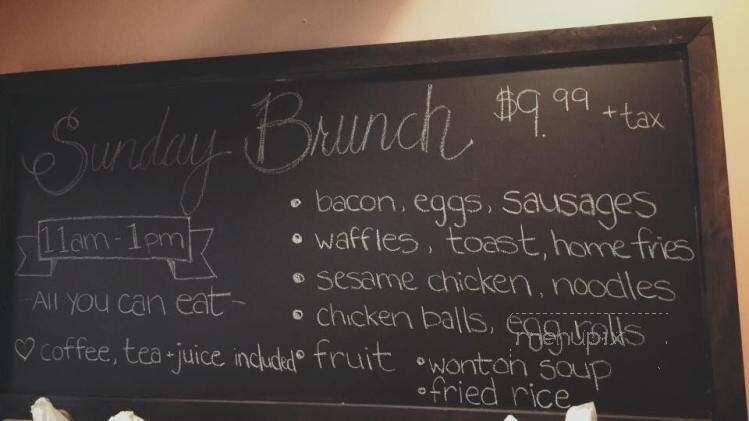 Sunday Brunch $9.99 + tax
11am - 1pm
-All you can eat-
♡ coffee, tea + juice included
• bacon, eggs, sausages
• waffles, toast, home fries
• sesame chicken, noodles
• chicken balls, egg rolls
menupix
• fruit • wonton soup
• fried rice